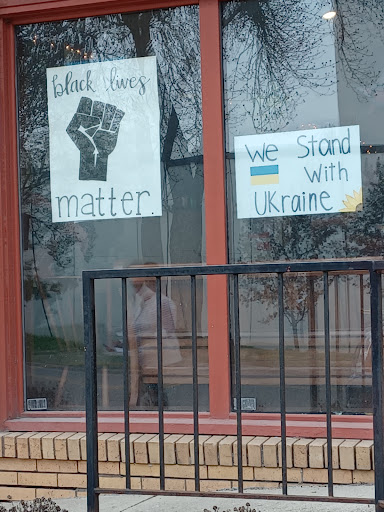 black lives
matter.
We Stand
With
UKraine